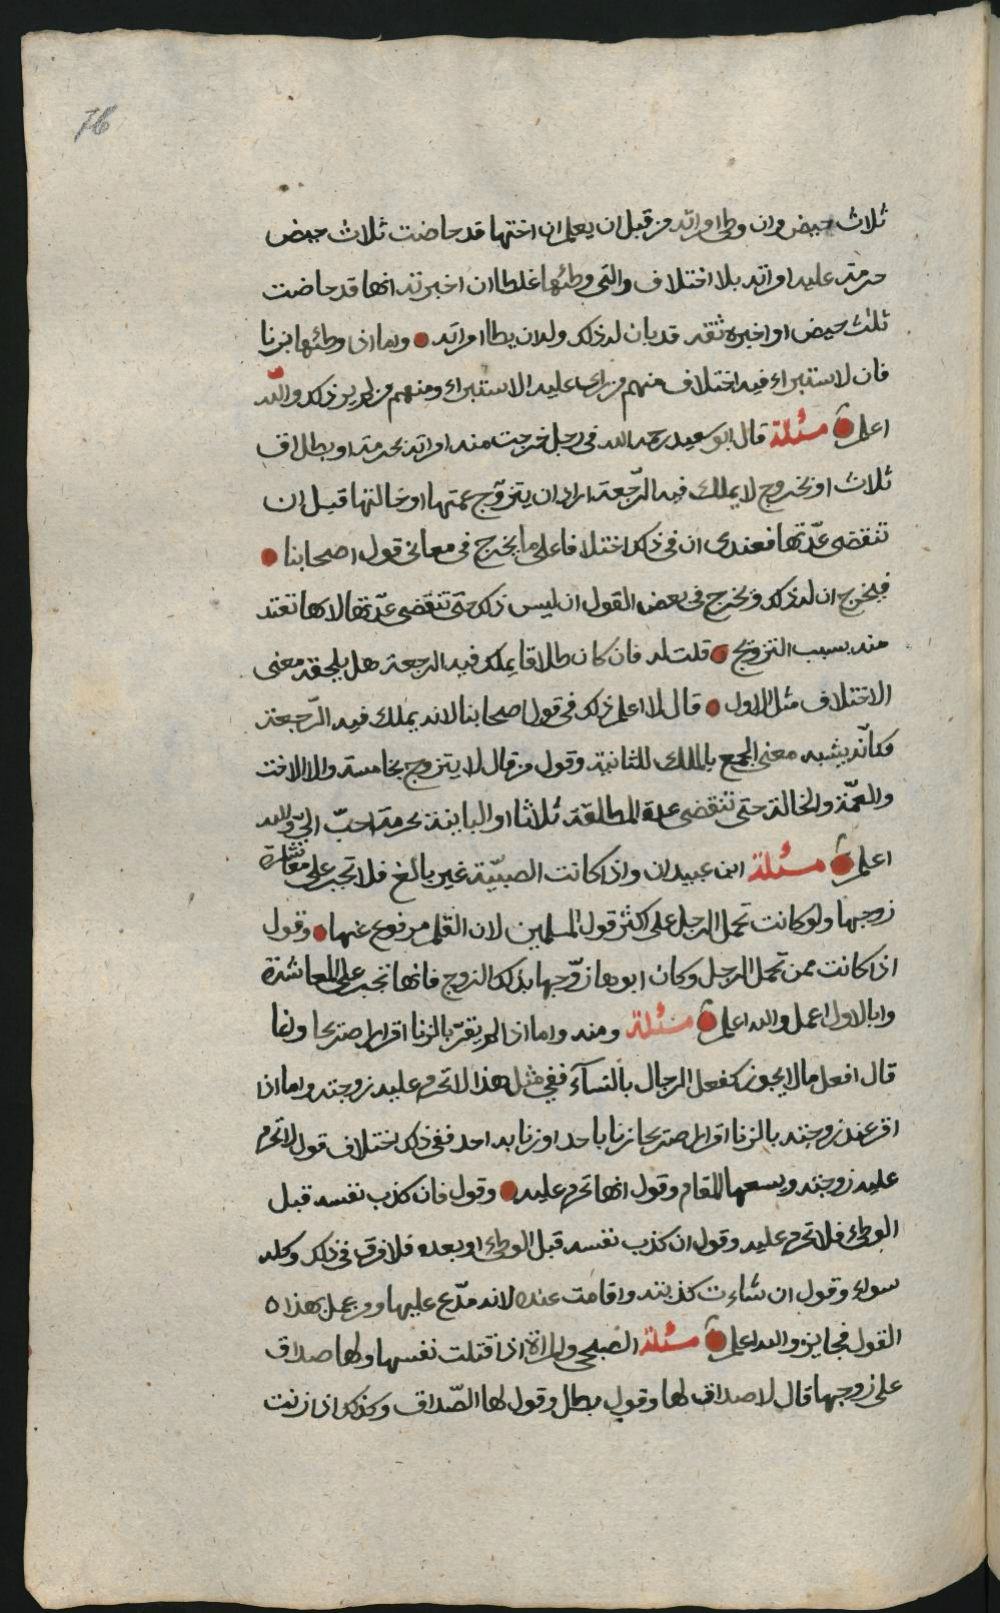 76
ثلاث حيض وان وطى امراته من قبل ان يعلم ان اختها قد حاضت ثلاث حيض
حرمة عليه امراته بلا اختلاف والتي وطئها غلطا ان اخبرته انها قد حاضت
ثلث حيض او اخبره ثقة قد بان له ذلك وله ان يطا امراته واما اذا وطئها بزنا
فان لاستبراء فيه اختلاف منهم من راى عليه الاستبراء ومنهم من لم ير ذلك والله
اعلم مسئلة قال ابو سعيد رحمه الله في رجل خرجت منه امراته بحرمة او بطلاق
ثلاث او بخروج لا يملك فيه الرّجعة اراد ان يتزوّج عمتها او خالتها قبل ان
تنقضى عدّتها فعندى ان في ذلك اختلافا على ما يخرج في معاني قول اصحابنا
فيخرج ان له ذلك ويخرج في بعض القول ان ليس ذلك حتى تنقضى عدّتها لانها تعتد
منه بسبب التزويج قلت له فان كان طلاقا يملك فيه الرجعة هل يلحقه معنى
الاختلاف مثل الاول قال لا اعلم ذلك في قول اصحابنا لانه يملك فيه الرّجعة
فكانّه يشبه معنى الجمع بالملك للثانية وقول من قال لا يتزوج بخامسة ولا الاخت
والعمّة والخالة حتى تنقضى عدة المطلقة ثلاثا او الباينة بحرمة احبّ اليّ والله
اعلم مسئلة ابن عبيدان واذا كانت الصبيّة غير بالغ فلا تجبر على معاشرة
زوجها ولو كانت تحمل الرجل على اكثر قول المسلمين لان القلم مرفوع عنها وقول
اذا كانت ممن تحمل الرجل وكان ابوها زوّجها بذلك الزوج فانها تجبر على المعاشرة
وابالاول اعمل والله اعلم مسئلة ومنه واما اذا لم يقرّ بالزنا اقرارا صريحا وانما
قال افعل ما لا يجوز كفعل الرجال بالنسآء ففي مثل هذا لا تحرم عليه زوجته واما اذا
اقر عند زوجته بالزنا اقرارا صريحا زنا باحد او زنا به احد ففي ذلك اختلاف قول لا تحرم
عليه زوجته ويسعها المقام وقول انها تحرم عليه وقول فان كذب نفسه قبل
الوطئ فلا تحرم عليه وقول ان كذب نفسه قبل الوطئ او بعده فلا فرق في ذلك وكله
سواء وقول ان شاءت كذبته واقامت عنده لانه مدّع عليها ومن عمل بهذا
القول فجايز والله اعلم مسئلة الصبحي والمراة اذا قتلت نفسها ولها صداق
على زوجها قال لا صداق لها وقول يبطل وقول لها الصّداق وكذلك اذا زنت